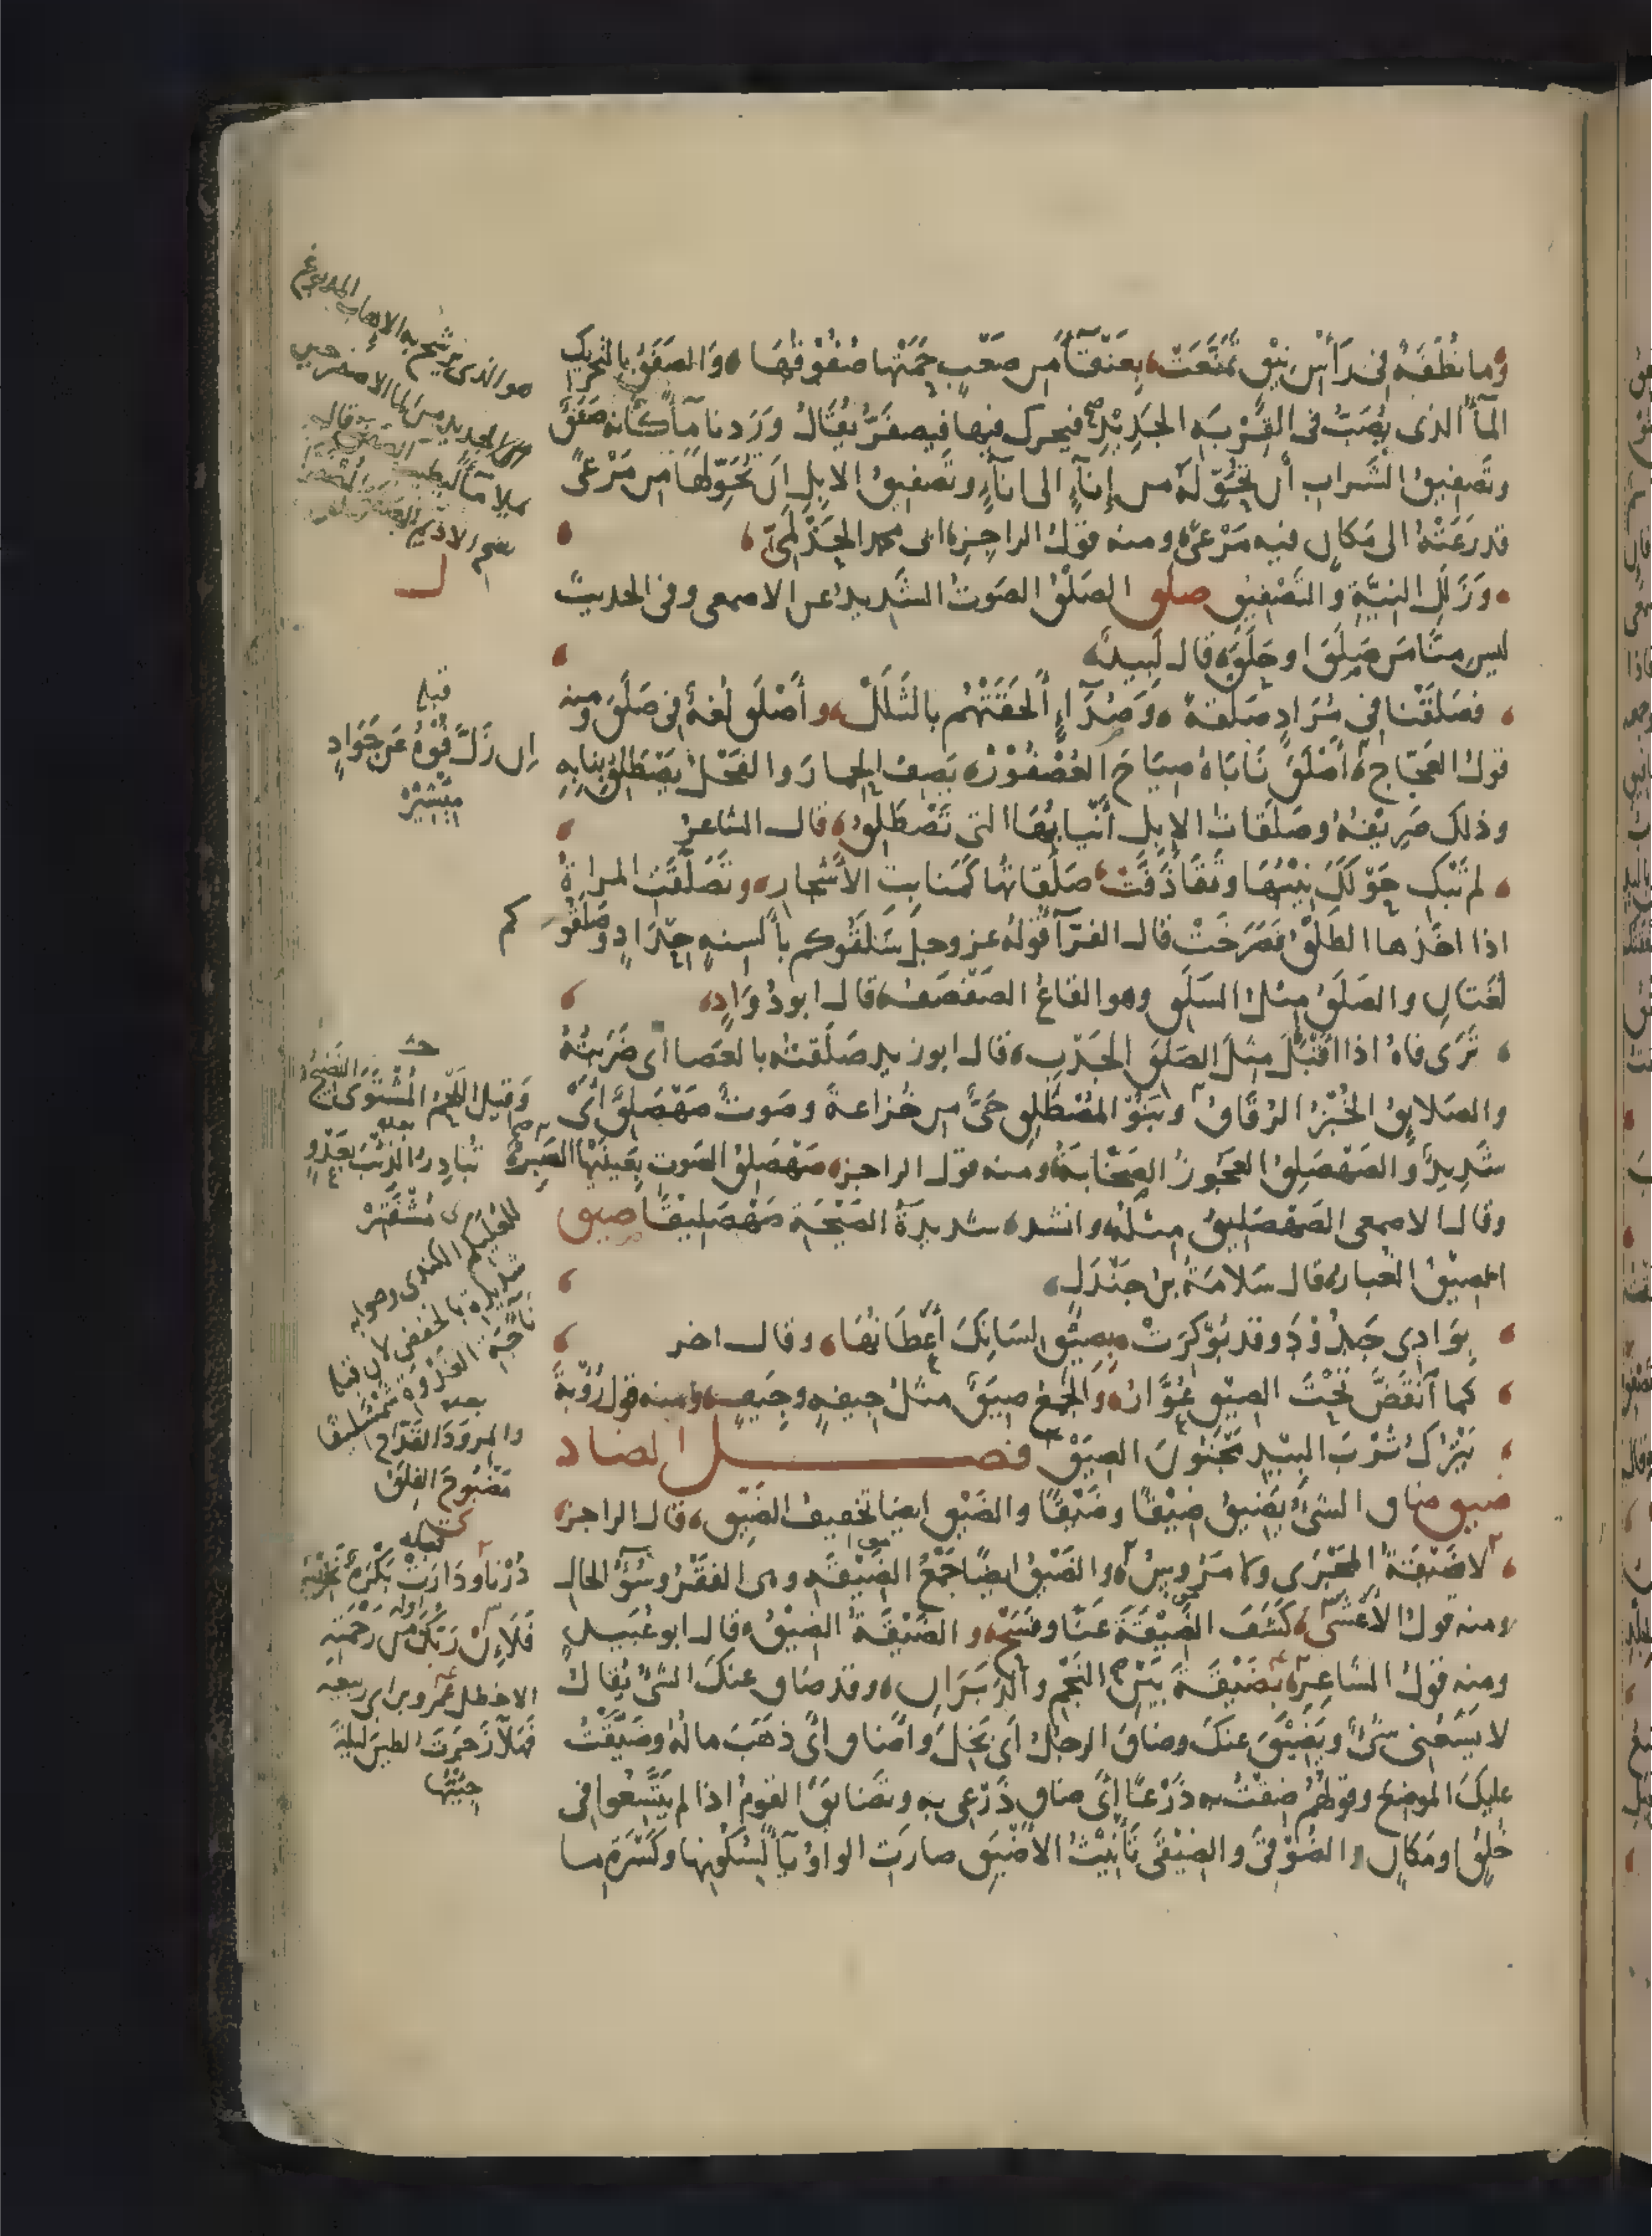 وما نُطْفَةٌ فى رَأْسِ نِيْقٍ تَمَنَّعَتْ بِعَنْقَاءَ مِن صَعْبٍ حَمَتْها صُفُوْقُهَا والصَفَقُ بالتحريك
المآءُ الذى يُصَبُّ فى القِرْبَةِ الجَدِيْدِةِ فيحرك فيها فيصفَرُّ يُقَالُ وَرَدنا مآءً كأنه صَفَقٌ
وتَصْفِيقُ الشَراب أن تُحَوِّلَهُ من إِنآءٍ الى انآءٍ وتَصْفِيقُ الابِلِ ان تُحَوِّلَها مِن مَرْعًى
قد رَعَتْهُ الى مَكانٍ فيه مَرْعًى ومنه قولُ الراجز ابى محمد الحَذْلَمِىّ
وَزَلَلِ النِيَّةِ والتَصْفِيْقِ صلق الصَلْقُ الصَوتُ الشَديدُ عن الاصمعى وفى الحديث
ليس منّا مَن صَلَقَ او حَلَقَ قال لَبيدٌ
فصَلَقْنا فى مُرَادٍ صَلْقَةً وَصُدَآءٍ أَلحَقَتْهُم بالثَلَلْ وأَصْلَقَ لُغةٌ فى صَلَقَ ومنه
قولُ العَجّاج أَصْلَقَ نَابَاهُ صِيَاحَ العُصْفُوْرْ يَصِفُ الحِمارَ والفَحْلُ يَصْطَلِقُ بِنابِهِ
وذلك صَرِيْفُهُ وصَلَقَاتُ الابِل أَنْيابُهَا التى تَصْطَلِقُ قال الشاعرُ
لم تَبْكِ حَوْلَكَ نِيْبُهَا وتَقَاذَفَتْ صَلَقاتُها كَمَنابِتِ الأَشْجارِ وتَصَلَّقَتِ المراةُ
اذا اخَذَها الطَلْقُ فصَرَخَتْ قال الفرّآءُ قولُهُ عز وجل سَلَقُوكم بأَلسِنةٍ حِدَادٍ وصَلَقُوكم
لُغتانِ والصَلَقُ مِثلُ السَلَقِ وهو القاعُ الصَفْصَفُ قال ابو دُوَادٍ
تَرَى فاهُ اذا أَقْبَلَ مِثلَ الصَلَقِ الجَدْبِ قال ابو زيد صَلَقتُهُ بالعَصا اى ضَرَبتُهُ
والصَلايِقُ الخُبْزُ الرُقَاقُ وبَنُو المُصْطَلِقِ حَىٌّ من خُزاعةَ وصَوتٌ صَهْصَلِقٌ أَىْ
شَدِيدٌ والصَهْصَلِقُ العَجُوزُ الصَخّابَةُ ومنه قول الراجز صَهْصَلِقُ الصَوتِ بِعَينَيْها الصَبِرْ
وقال الاصمعى الصَهْصَلِيقُ مِثلُهُ وانشد شديدةُ الصَيْحَةِ صَهْصَلِيْقًا صيق
الصِيْقُ الغُبارُ قال سَلامَةُ بنُ جَنْدَلٍ
بِوَادِى جَدُوْدَ وقد بُوكِرَتْ بصِيْقِ السَنابِكِ أَعْطَانُهَا وقال اخر
كما آنْقَضَّ تَحْتَ الصِيْقِ عُوَّارُ والجَمْعُ صِيَقٌ مثلُ جِيفةٍ وجِيَفٍ ومنه قول رُؤْبةَ
يَتْرُكْنَ تُرْبَ البِيدِ مَجْنُونَ الصِيَقْ فصل الضاد
ضيق ضاق الشىءُ يَضيقُ ضِيْقًا وضَيْقًا والضَيْق ايضًا تخفيفُ الضَيِّق قال الراجزُ
لا ضَيْقَةُ المَجْرَى ولا مَرُوسُ والضَيْقُ ايضًا جَمْعُ الضَيْقَةِ وهى الفقْرُ وسُوْءُ الحالِ
ومنه قولُ الأَعْشَى كَشَفَ الضَيْقَةَ عَنّا وفَسَحْ والضَيْقَةُ الضِيْقُ قال ابو عُبَيدٍ
ومنه قولُ الشاعِرِ بضَيْقَةَ بَيْنَ النَجْمِ والدَبَرَانِ وقد ضاق عنكَ الشىءُ يُقالُ
لا يَسَعُنى شىءٌ ويَضِيْقَ عنكَ وضاقَ الرجلُ اى بَخِلَ وأَضَاق أىْ ذهَبَ مالُهُ وضَيَّقْتُ
عليكَ الموضِعَ وقولُهُم ضِقْتُ به ذَرْعًا أىْ ضاق ذَرْعِى به وتَضايَقَ القومُ اذا لم يتَّسِعُوا فى
خُلُقٍ او مَكانٍ والضُوْقَى والضِيْقَى تَأْنِيْثُ الأَضْيَقِ صارَت الواوُ يآءً لسُكُونِها وكَسْرَةِ ما
هو الذى يرشح به الاهاب المدبوغ
قبله
إن زَلَّ فُوْهُ عَن جَوَادٍ
مِئْشِيْرْ
وقيل اللَّحْمُ المُشْتَوَى النَضِيْجُ
بعده تُبادِرُ الذِئْبَ بعَدْوٍ
مُشْفَتِرْ
والمَرْوَ ذا القَدّاحِ
مَضْبُوحَ الفِلَقْ
قبله
دُرْنا ودَارَتْ بَكْرَةٌ نَخِيْسُ
اوله
فَلَئِنْ رَبُّكَ مِن رَحْمَتِهِ
الاخطل
فَهَلّا زَجَرْتَ الطيرَ ليلةَ
جِئْتَها